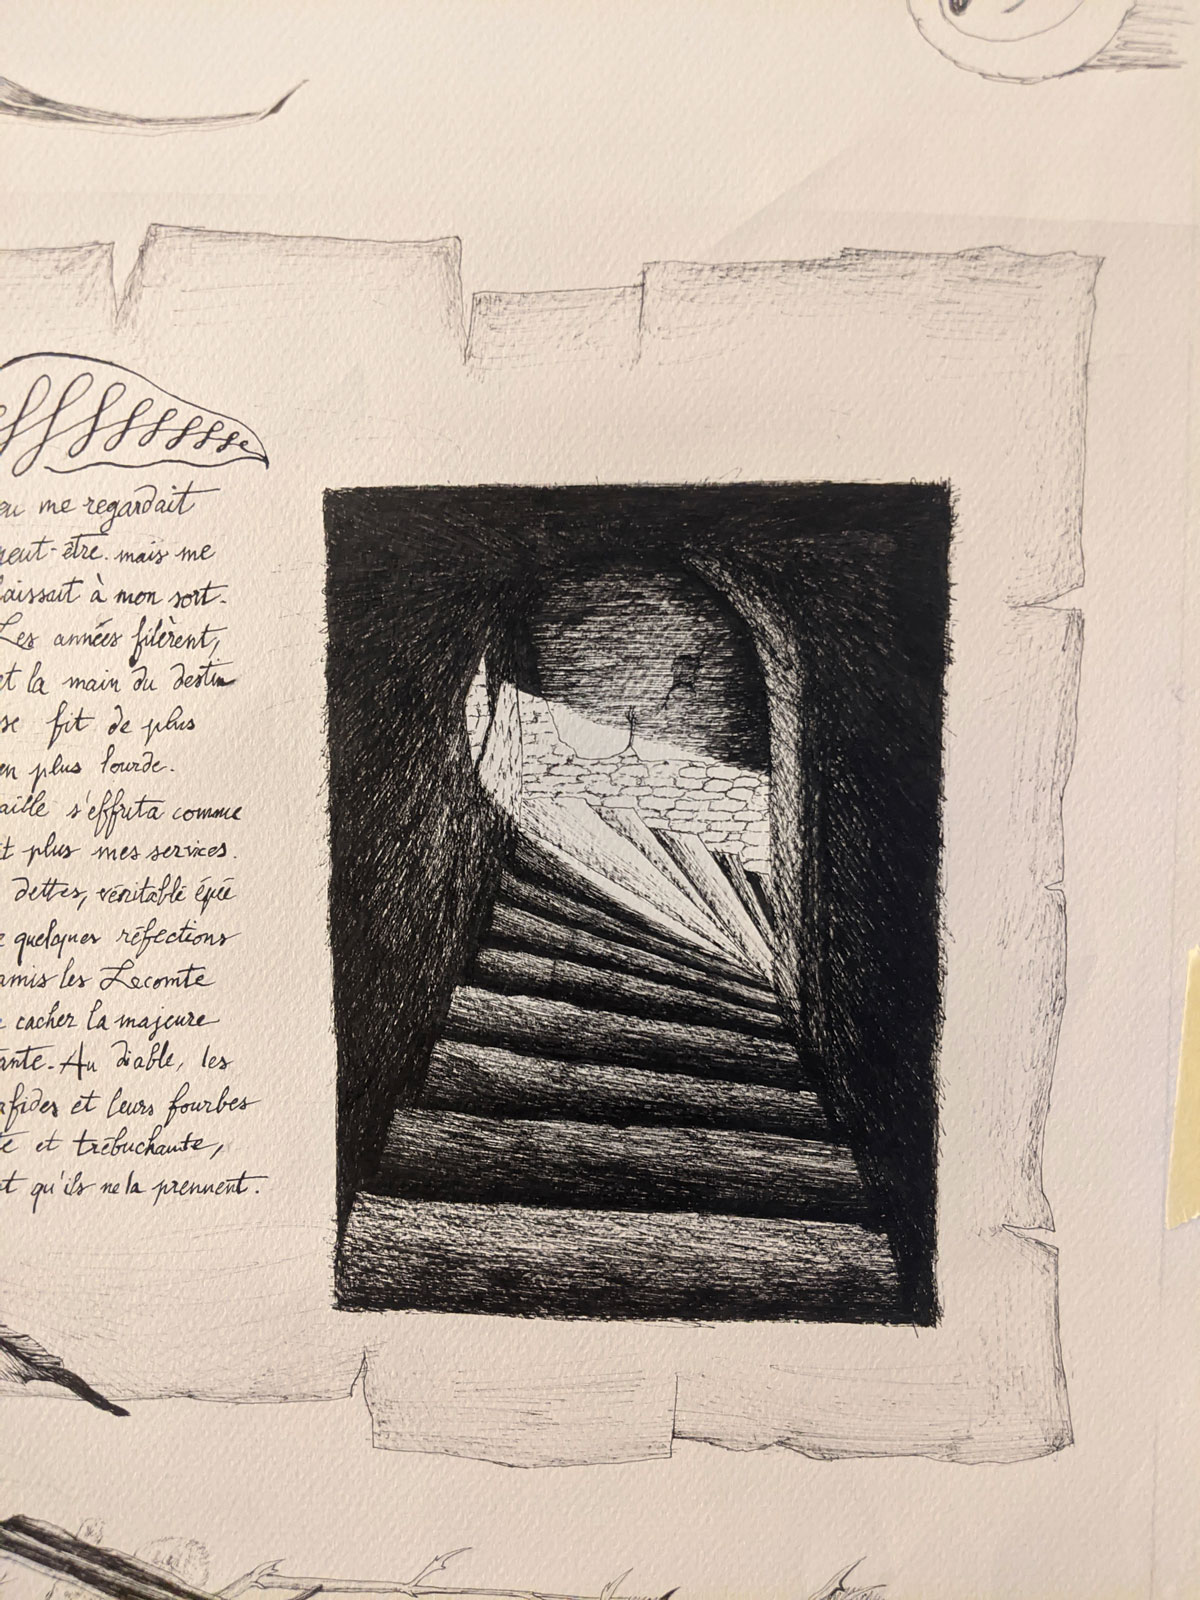 me regardait
peut-être. mais me
laissait à mon sort.
Les années filèrent,
et la main du destin
se fit de plus
en plus lourde.
aille s'effrita comme
plus mes services.
dettes, véritable épée
quelques réfections
amis les Lecomte
cacher la majeure
ante. Au diable, les
rfides et leurs fourbes
et trébuchante,
qu'ils ne la prennent.